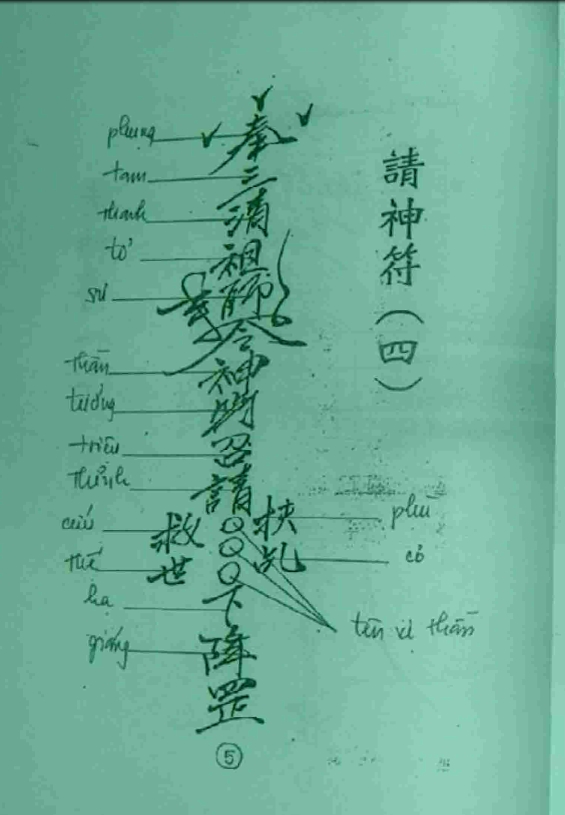 請神符(四)
phụng
奉
tam
三
thanh
清
tổ
祖
sư
師
令
thần
神
tướng
triệu
召
thỉnh
請
phù
扶
cứu
救
cỏ
乩
thế
世
tên vị thần
hạ
下
giáng
降
罡
5